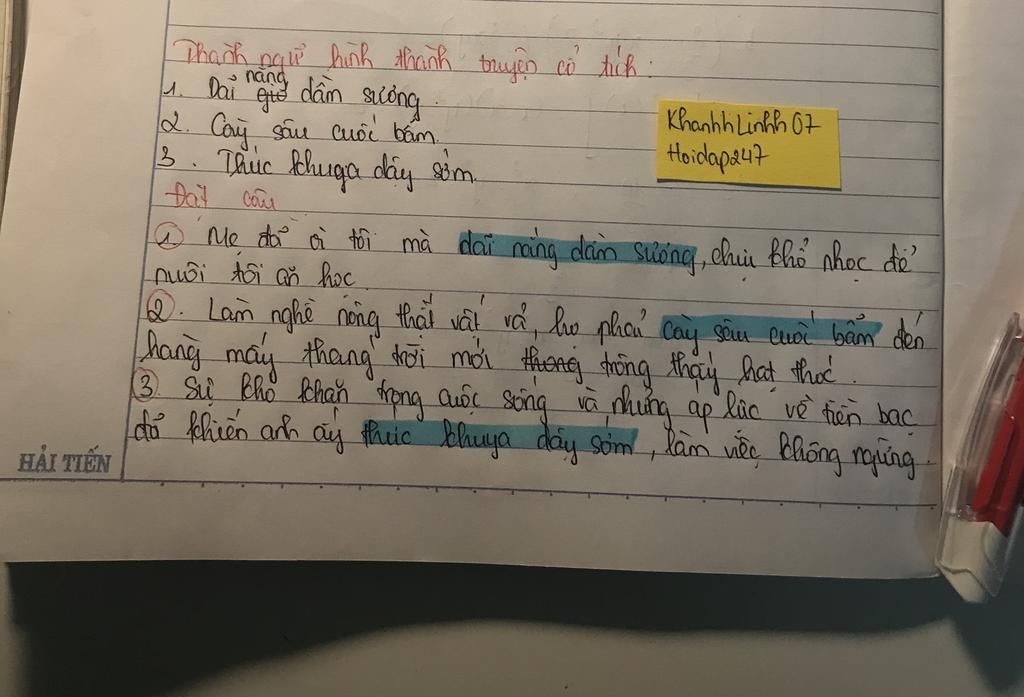 Thành ngữ hình thành truyện cổ tích:
1. Dãi nắng gió dầm sương.
2. Cày sâu cuốc bẫm.
3. Thức khuya dậy sớm.
KhanhhLinhh07
Hoidap247
Đặt câu
1. Mẹ đã vì tôi mà dãi nắng dầm sương, chịu khổ nhọc để
nuôi tôi ăn học.
2. Làm nghề nông thật vất vả, họ phải cày sâu cuốc bẫm đến
hàng mấy tháng trời mới thong trông thấy hạt thóc.
3. Sự khó khăn trong cuộc sống và những áp lực về tiền bạc
đã khiến anh ấy thức khuya dậy sớm, làm việc không ngừng.
HẢI TIẾN